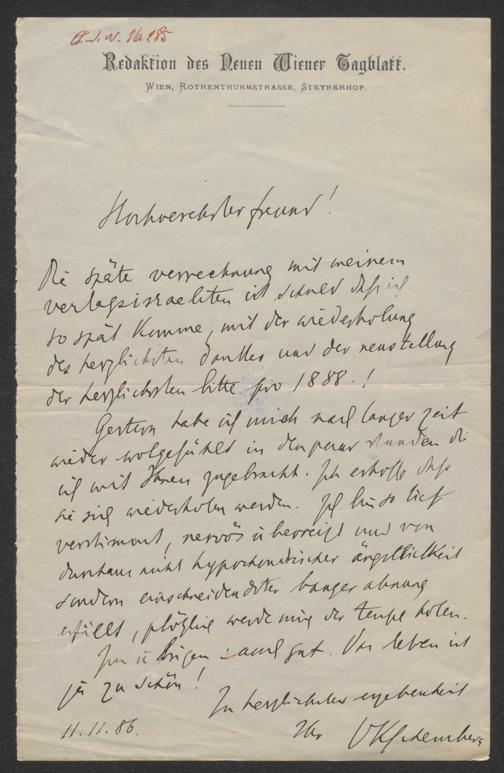 Redaktion des Neuen Wiener Tagblatt.
Wien, Rothenthurmstrasse, Steyrerhof.
Hochverehrter freund!
Die späte verrechnung mit meinem
verlagsisraeliten ist schuld daß ich
so spät komme, mit der wiederholung
des herzlichsten dankes und der neustellung
der herzlichsten bitte pro 1888.!
Gestern habe ich mich nach langer zeit
wieder wolgefühlt in den paar stunden die
ich mit Ihnen zugebracht. Ich erhoffe daß
sie sich wiederholen werden. Ich bin so tief
verstimmt, nervös u und von
durchaus nicht hypochondrischer ängstlichkeit
sondern einschneidendster banger ahnung
erfüllt, plötzlich werde mich der teufel holen.
Im übrigen : auch gut. Das leben ist
ja zu schön!
In herzlichster ergebenheit
11.11.86.
Ihr